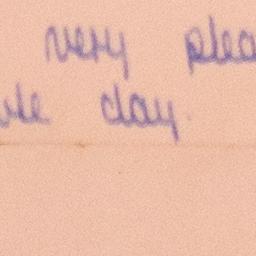 very plea
ole day.